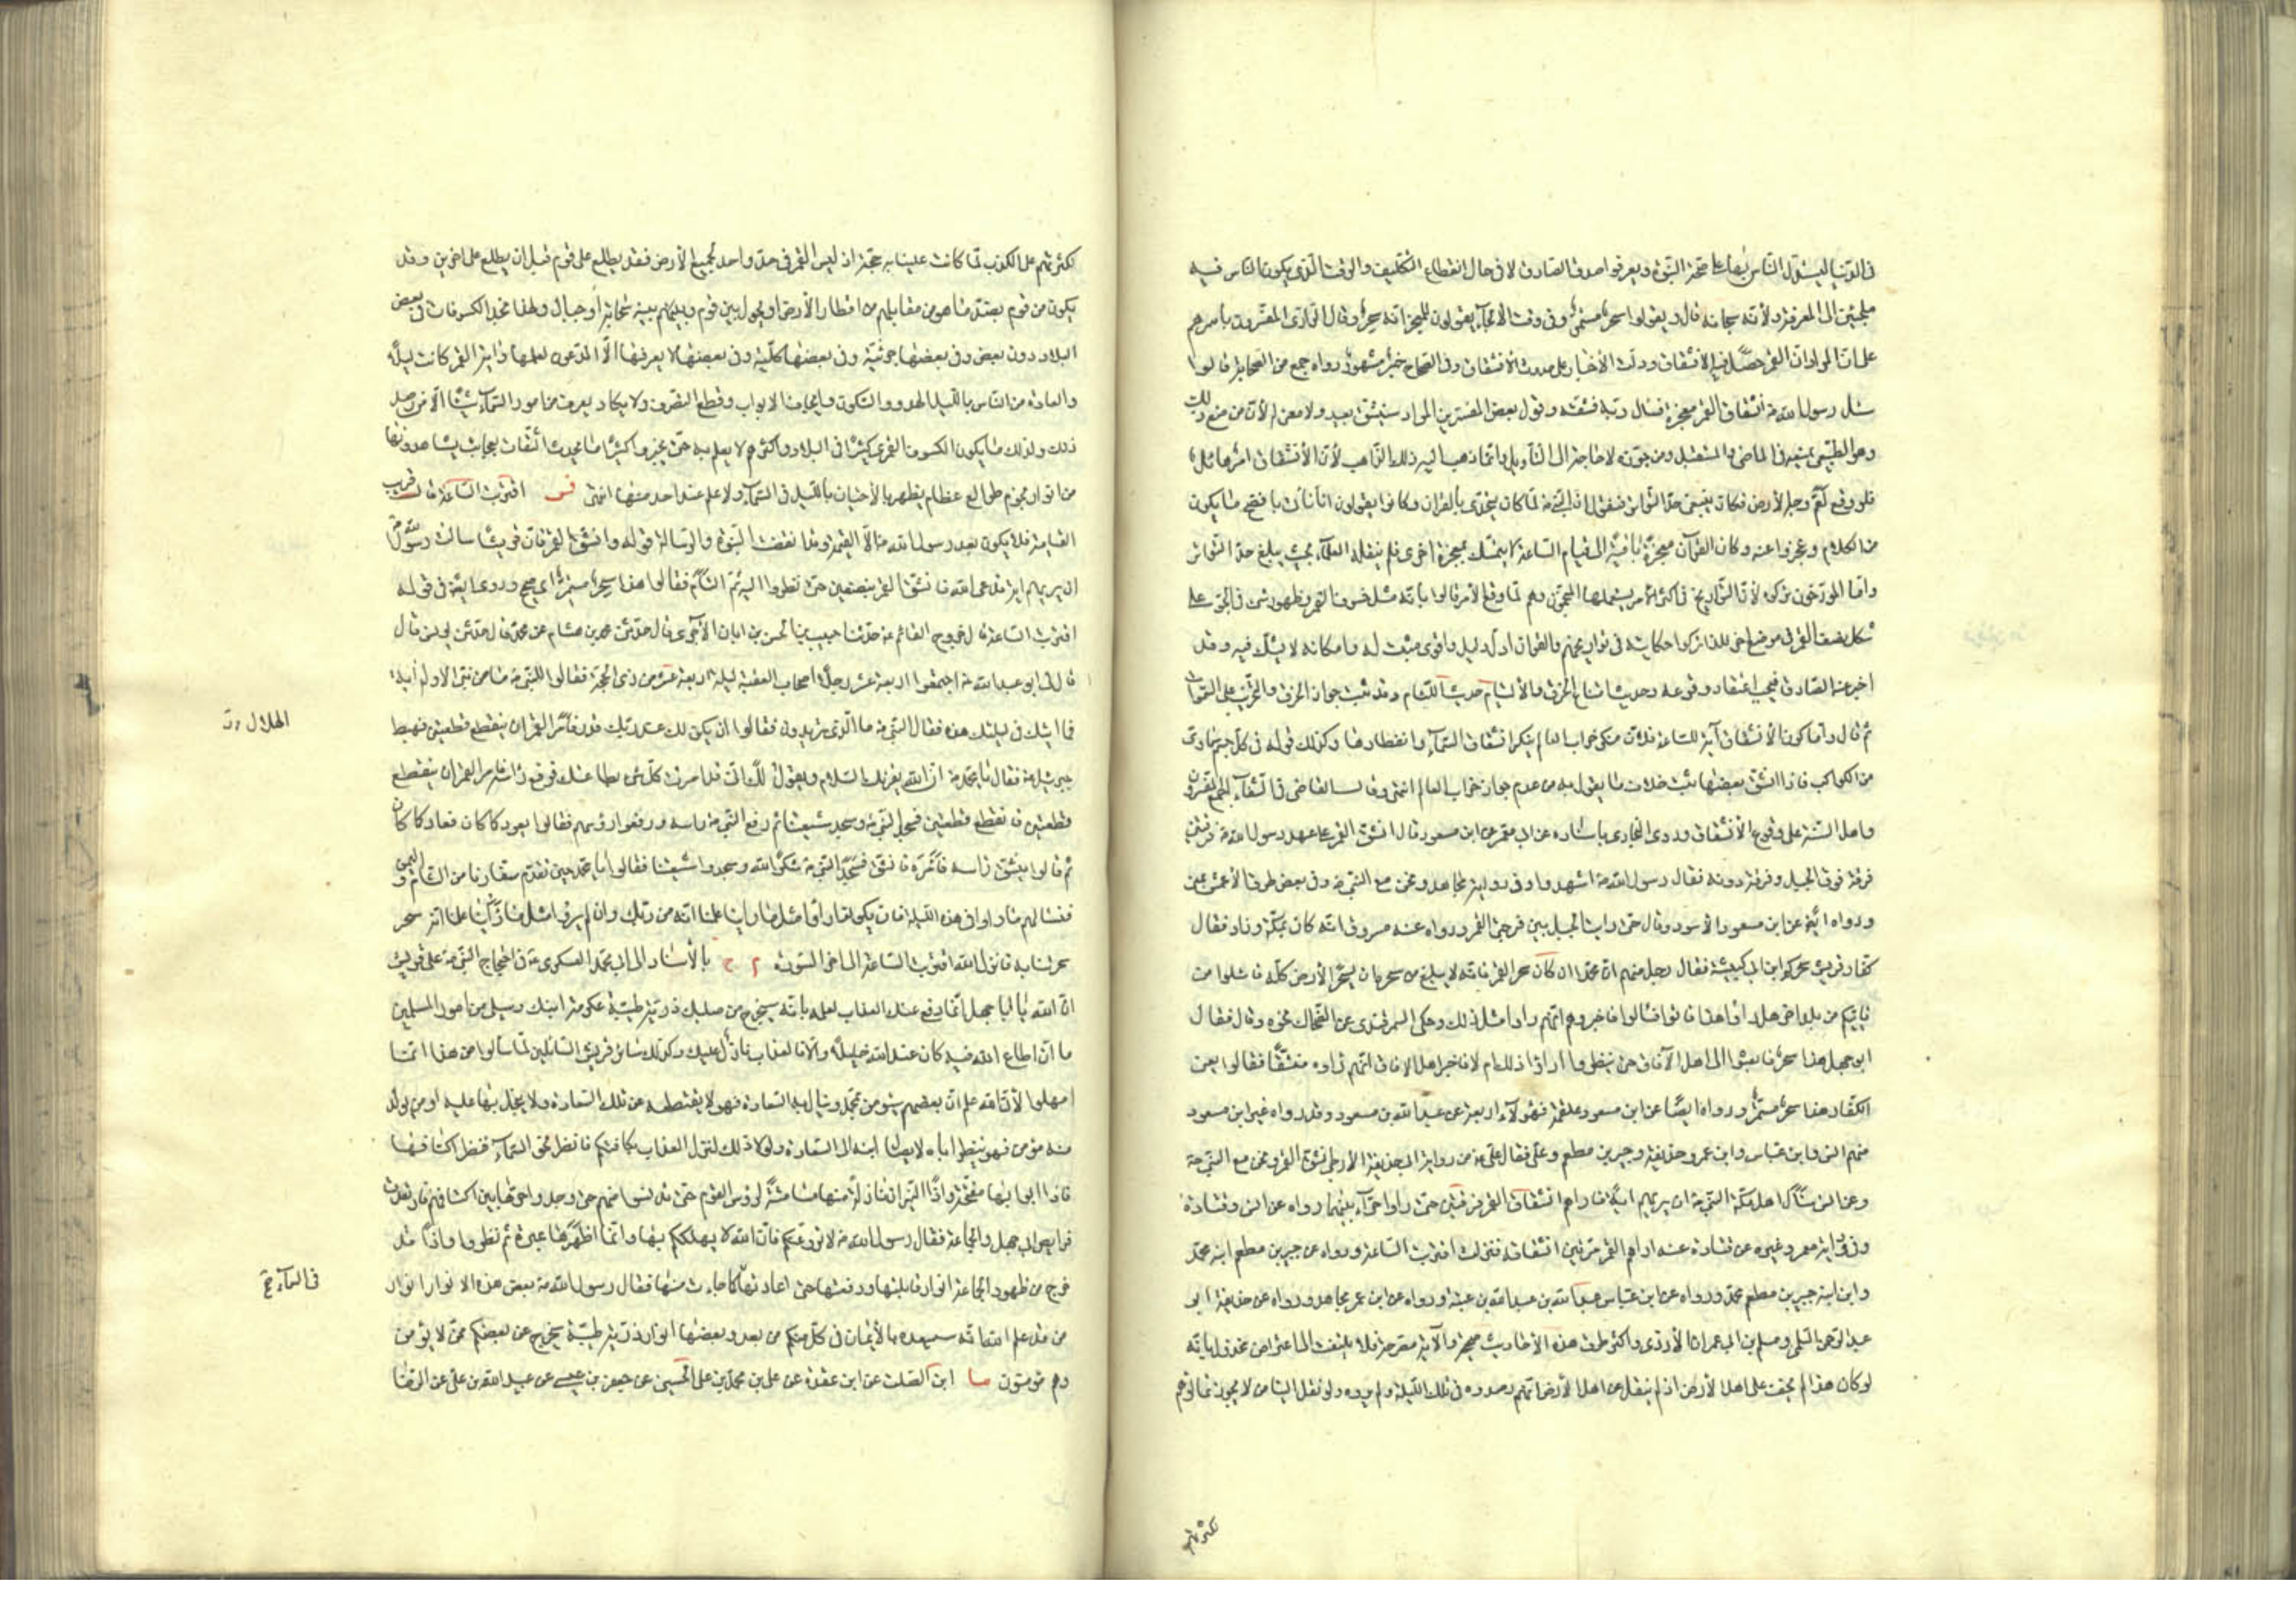 فى الدّنيا ليستدلّ الناس بها على صحّة النبوّة ويعرفوا صدق الصادق لا فى حال انقطاع التّكليف والوقت الّذى يكون الناس فيه
ملجئين الى المعرفة ولأنّه سبحانه قال ويقولوا سحر مستمرّ وفى وقت الالجاء لا يقولون للمعجز انّه سحر وقال الرّازى المفسّرون بأسرهم
على انّ المراد انّ القمر حصل فيه الانشقاق ودلّت الأخبار على حديث الانشقاق وفى الصّحاح خبر مشهور رواه جمع من الصحابة قالوا
سئل رسول الله ص انشقاق القمر معجزة فسأل ربّه فشقّه وقال بعض المفسّرين المراد سينشقّ بعيد ولا معنى له لأنّ من منع ذلك
وهو الطبيعىّ يمنعه فى الماضى والمستقبل ومن يجوّزه لا حاجة الى التأويل وانّما ذهب اليه ذلك الذّاهب لأنّ الأنشقاق امر هائل
فلو وقع لعمّ وجه الأرض فكان ينبغى حدّ التّواتر فنقول انّ النبىّ ص لمّا كان يتحدّى بالقران وكانوا يقولون انّا نأتى بافصح ما يكون
من الكلام وعجزوا عنه وكان القرآن معجزة باقية الى قيام الساعة لا يتمسّك بمعجزة اخرى فلم ينقله العلماء بحيث يبلغ حدّ التّواتر
وامّا المورّخون تركوه لأنّ التّواريخ فى اكثر الأمر يستعملها المنجّمون وهم لمّا وقع الأمر قالوا بأنّه مثل خسوف القمر وظهور شئ فى الجوّ على
شكل نصف القمر فى موضع اخر فلذا تركوا حكايته فى تواريخهم والقران ادلّ دليل واقوى مثبت له وامكانه لا يشكّ فيه وقد
اخبر عنه الصّادق فيجب اعتقاد وقوعه وحديث امتناع الخرق والالتيام حديث اللّئام وقد ثبت جواز الخرق والتخريب على السّموات
ثمّ قال وامّا كون الأنشقاق آية للساعة فلأنّ منكر خراب العالم ينكر انشقاق السماء وانفطارها وكذلك قوله فى كلّ جسم سماوىّ
من الكواكب فاذا انشقّ بعضها ثبت خلاف ما يقول به من عدم جواز خراب العالم انتهى وقال القاضى فى الشّفاء اجمع المفسّرون
واهل السّنة على وقوع الانشقاق وروى البخارى باسناده عن ابى معمر عن ابن مسعود قال انشقّ القمر على عهد رسول الله ص فرقتين
فرقة فوق الجبل وفرقة دونه فقال رسول الله ص اشهدوا وفى رواية مجاهد ونحن مع النبىّ ص وفى بعض طرق الأعمش بمنى
ورواه ايضا عن ابن مسعود الأسود وقال حتّى رايت الجبل بين فرجتى القمر ورواه عنه مسروق انّه كان بمكّة وزاد فقال
كفّار قريش سحركم ابن ابى كبشة فقال رجل منهم انّ محمّدا ان كان سحر القمر فانّه لا يبلغ من سحره ان يسحر الأرض كلّه فاسئلوا من
يأتيكم من بلد اخر هل راوا هذا فاتوا فسألوا فاخبروهم انّهم راوا مثل ذلك وحكى السمرقندى عن الضّحاك نحوه وقال فقال
ابو جهل هذا سحر فابعثوا الى اهل الآفاق حتّى ينظروا اراوا ذلك ام لا فاخبر اهل الافاق انّهم راوه منشقّا فقالوا يعنى
الكفّار هذا سحر مستمرّ ورواه ايضا عن ابن مسعود علقمة فهؤلاء اربعة عن عبد الله بن مسعود وقد رواه غير ابن مسعود
منهم انس وابن عبّاس وابن عمر وحذيفة وجبير بن مطعم وعلىّ فقال علىّ ع من رواية ابى حذيفة الأرحبى انشقّ القمر ونحن مع النبىّ ص
وعن انس سأل اهل مكّة النبىّ ص ان يريهم اية فاراهم انشقاق القمر فرقتين حتّى راوا حراء بينهما رواه عن انس وقتادة
وفى رواية معمر وغيره عن قتادة عنه اراهم القمر مرّتين انشقاقه فنزلت اقتربت الساعة ورواه عن جبير بن مطعم ابنه محمّد
وابن ابنه جبير بن مطعم محمّد ورواه عن ابن عبّاس عبيد الله بن عبد الله بن عتبة ورواه عن ابن عمر مجاهد ورواه عن حذيفة ابو
عبد الرّحمن السّلمى ومسلم بن ابى عمران الأزدى واكثر طرق هذه الأحاديث صحيحة والآية مصرّحة فلا يلتفت الى اعتراض مخذول بأنّه
لو كان هذا لم يخف على اهل الأرض اذ لم ينقل عن اهل الأرض انّهم رصدوه فى تلك اللّيلة ولم يروه ولو نقل الينا من لا يجوز تمالؤهم
لكثرتهم
لكثرتهم على الكذب لمّا كانت علينا به حجّة اذ ليس القمر فى حدّ واحد لجميع الأرض فقد يطلع على قوم قبل ان يطلع على اخرين وقد
يكون من قوم بضدّ ما هو من مقابلهم من اقطار الأرض او يحول بين قوم وبينهم بينه سحاب او جبال ولهذا نجد الكسوفات فى بعض
البلاد دون بعض وفى بعضها جزئيّة وفى بعضها كلّية وفى بعضها لا يعرفها الّا المدّعون لعلمها واية القمر كانت ليلا
والعادة من الناس بالليل الهدوء والسّكون وايجاف الابواب وقطع التصرّف ولا يكاد يعرف من امور السّماء شيئا الّا من رصد
ذلك ولذلك ما يكون الكسوف القمرى كثيرا فى البلاد واكثرهم لا يعلم به حتّى يخبر وكثيرا ما يحدث الثّقات بعجايب يشاهدونها
من انوار ونجوم طوالع عظام يظهر بالأحيان بالليل فى السّماء ولا علم عند احد منها انتهى فس اقتربت السّاعة قال قربت
القيامة فلا يكون بعد رسول الله ص الّا القيمة وقد انقضت النبوّة والرّسالة قوله وانشقّ القمر فانّ قريشا سالت رسول الله ص
ان يريهم اية فدعى الله فانشقّ القمر بنصفين حتّى نظروا اليه ثمّ التأم فقالوا هذا سحر مستمرّ اى صحيح وروى ايضا فى قوله
اقتربت الساعة قال خروج القائم ع حدّثنا حبيب بن الحسن بن ابان الآجرى قال حدّثنى محمد بن هشام عن محمّد قال حدّثنى يونس قال
قال لى ابو عبد الله ع اجتمعوا اربعة عشر رجلا اصحاب العقبة ليلة اربعة عشر من ذى الحجّة فقالوا للنبىّ ص ما من نبىّ الا وله آية
فما ايتك فى ليلتك هذه فقال النبىّ ص ما الّذى تريدون فقالوا ان يكن لك عند ربّك قدر فأمر القمر ان ينقطع قطعتين فهبط
جبرئيل ع فقال يا محمّد ص انّ الله يقرئك السّلام ويقول لك انّى قد امرت كلّ شئ بطاعتك فرفع راسه فامر القمر ان ينقطع
قطعتين فانقطع قطعتين فسجد النبىّ ص وسجد شيعتنا ثمّ رفع النبىّ ص راسه ورفعوا رؤسهم فقالوا يعود كما كان فعاد كما كان
ثمّ قالوا ينشقّ راسه فأمره فانشقّ فسجد النبىّ ص شكرا لله وسجدوا شيعتنا فقالوا يا محمّد حين تقدم سفّارنا من الشام واليمن
فنسالهم ما راوا فى هذه اللّيلة فان يكونوا راوا مثل ما راينا علمنا انّه من ربّك وان لم يروا مثل ما راينا علمنا انّه سحر
سحرتنا به فانزل الله اقتربت السّاعة الى اخر السّورة م ج بالأسناد الى ابى محمّد العسكرى ع فى احتجاج النبىّ ص على قريش
انّ الله يا ابا جهل انّما دفع عنك العذاب لعلمه بانّه سيخرج من صلبك ذرّية طيّبة عكرمة ابنك وسيلى من امور المسلمين
ما ان اطاع الله فيه كان عند الله خليلا والّا فالعذاب نازل عليك وكذلك سائر قريش السّائلين لمّا سألوا من هذا انّما
امهلوا لأنّ الله علم انّ بعضهم سيؤمن بمحمّد وينال به السّعادة فهو لا يقتطعه عن تلك السّعادة ولا يبخل بها عليه او من يولد
منه مؤمن فهو ينظر اباه لايصال ابنه الى السّعادة ولولا ذلك لنزل العذاب بكافّتكم فانظر نحو السّماء فنظر اكنافها
فاذا ابوابها مفتّحة واذا النّيران نازلة منها مسامتة لرؤس القوم حتّى تدنو منهم حتّى وجدوا حرّها بين اكتافهم فارتعدت
فرايص ابى جهل والجماعة فقال رسول الله ص لا تروعنّكم فانّ الله لا يهلككم بها وانّما اظهرها عبرة ثمّ نظروا واذا قد
خرج من ظهور الجماعة انوار قابلتها ودفعتها حتّى اعادتها كما جاءت منها فقال رسول الله ص بعض هذه الانوار انوار
من قد علم الله انّه سيسعده بالأيمان فى كلّ منكم من بعد وبعضها انوار ذرّية طيّبة يخرج عن بعضكم ممّن لا يؤمن
وهم مؤمنون ما ابن الصّلت عن ابن عقدة عن على بن محمّد بن على الحسينى عن جعفر بن عيسى عن عبيد الله بن على عن الرّضا
الهلال رت
فى السماء خ